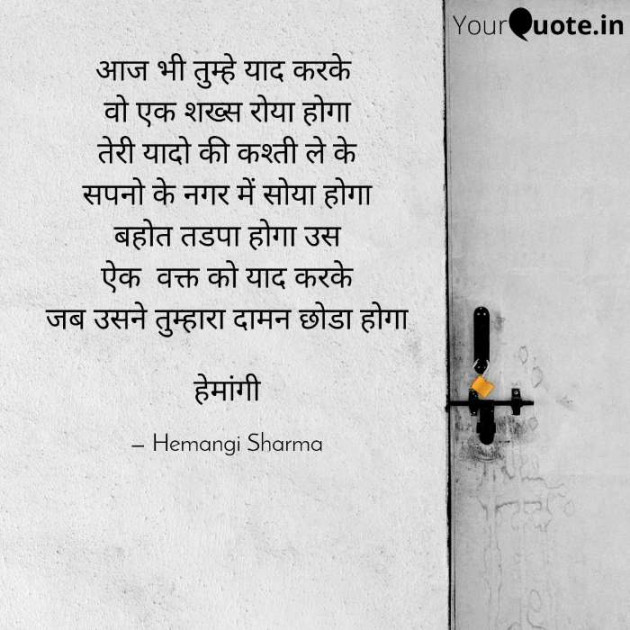 YourQuote.in
आज भी तुम्हे याद करके
वो एक शख्स रोया होगा
तेरी यादो की कश्ती ले के
सपनो के नगर में सोया होगा
बहोत तडपा होगा उस
ऐक वक्त को याद करके
जब उसने तुम्हारा दामन छोडा होगा
हेमांगी
– Hemangi Sharma